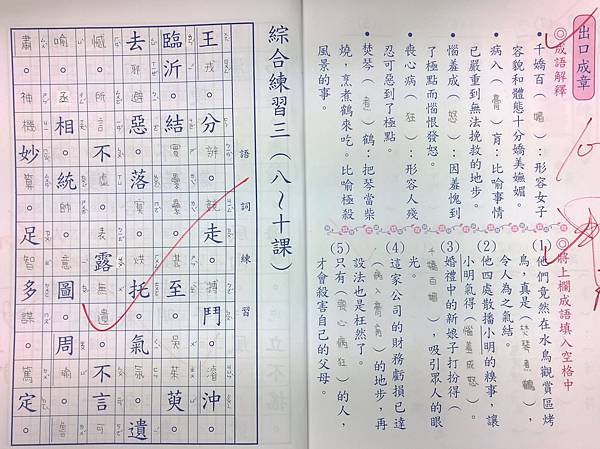 出口成章
◎成語解釋
• 千嬌百（媚）：形容女子
容貌和體態十分嬌美嫵媚。
• 病入（膏）肓：比喻事情
已嚴重到無法挽救的地步。
• 惱羞成（怒）：因羞愧到
了極點而惱恨發怒。
• 喪心病（狂）：形容人殘
忍可惡到了極點。
• 焚琴（煮）鶴：把琴當柴
燒，烹煮鶴來吃。比喻極殺
風景的事。
◎將上欄成語填入空格中
(1)他們竟然在水鳥觀賞區烤
鳥，真是（焚琴煮鶴），
令人為之氣結。
(2)他四處散播小明的糗事，讓
小明氣得（惱羞成怒）。
(3)婚禮中的新娘子打扮得（
千嬌百媚），吸引眾人的眼
光。
(4)這家公司的財務虧損已達
（病入膏肓）的地步，再
設法也是枉然了。
(5)只有（喪心病狂）的人，
才會殺害自己的父母。
綜合練習三（八～十課）
語詞練習
王戎。分辨。競走。搏鬥。濬沖。
臨沂。結實纍纍。甚至。吳茱萸。
去邪避惡。落實。烘托。氣氛。遺
憾。所言不虛。表露無遺。不言可
喻。丞相。統帥。意圖。周瑜。魯
肅。神機妙算。足智多謀。篤定。